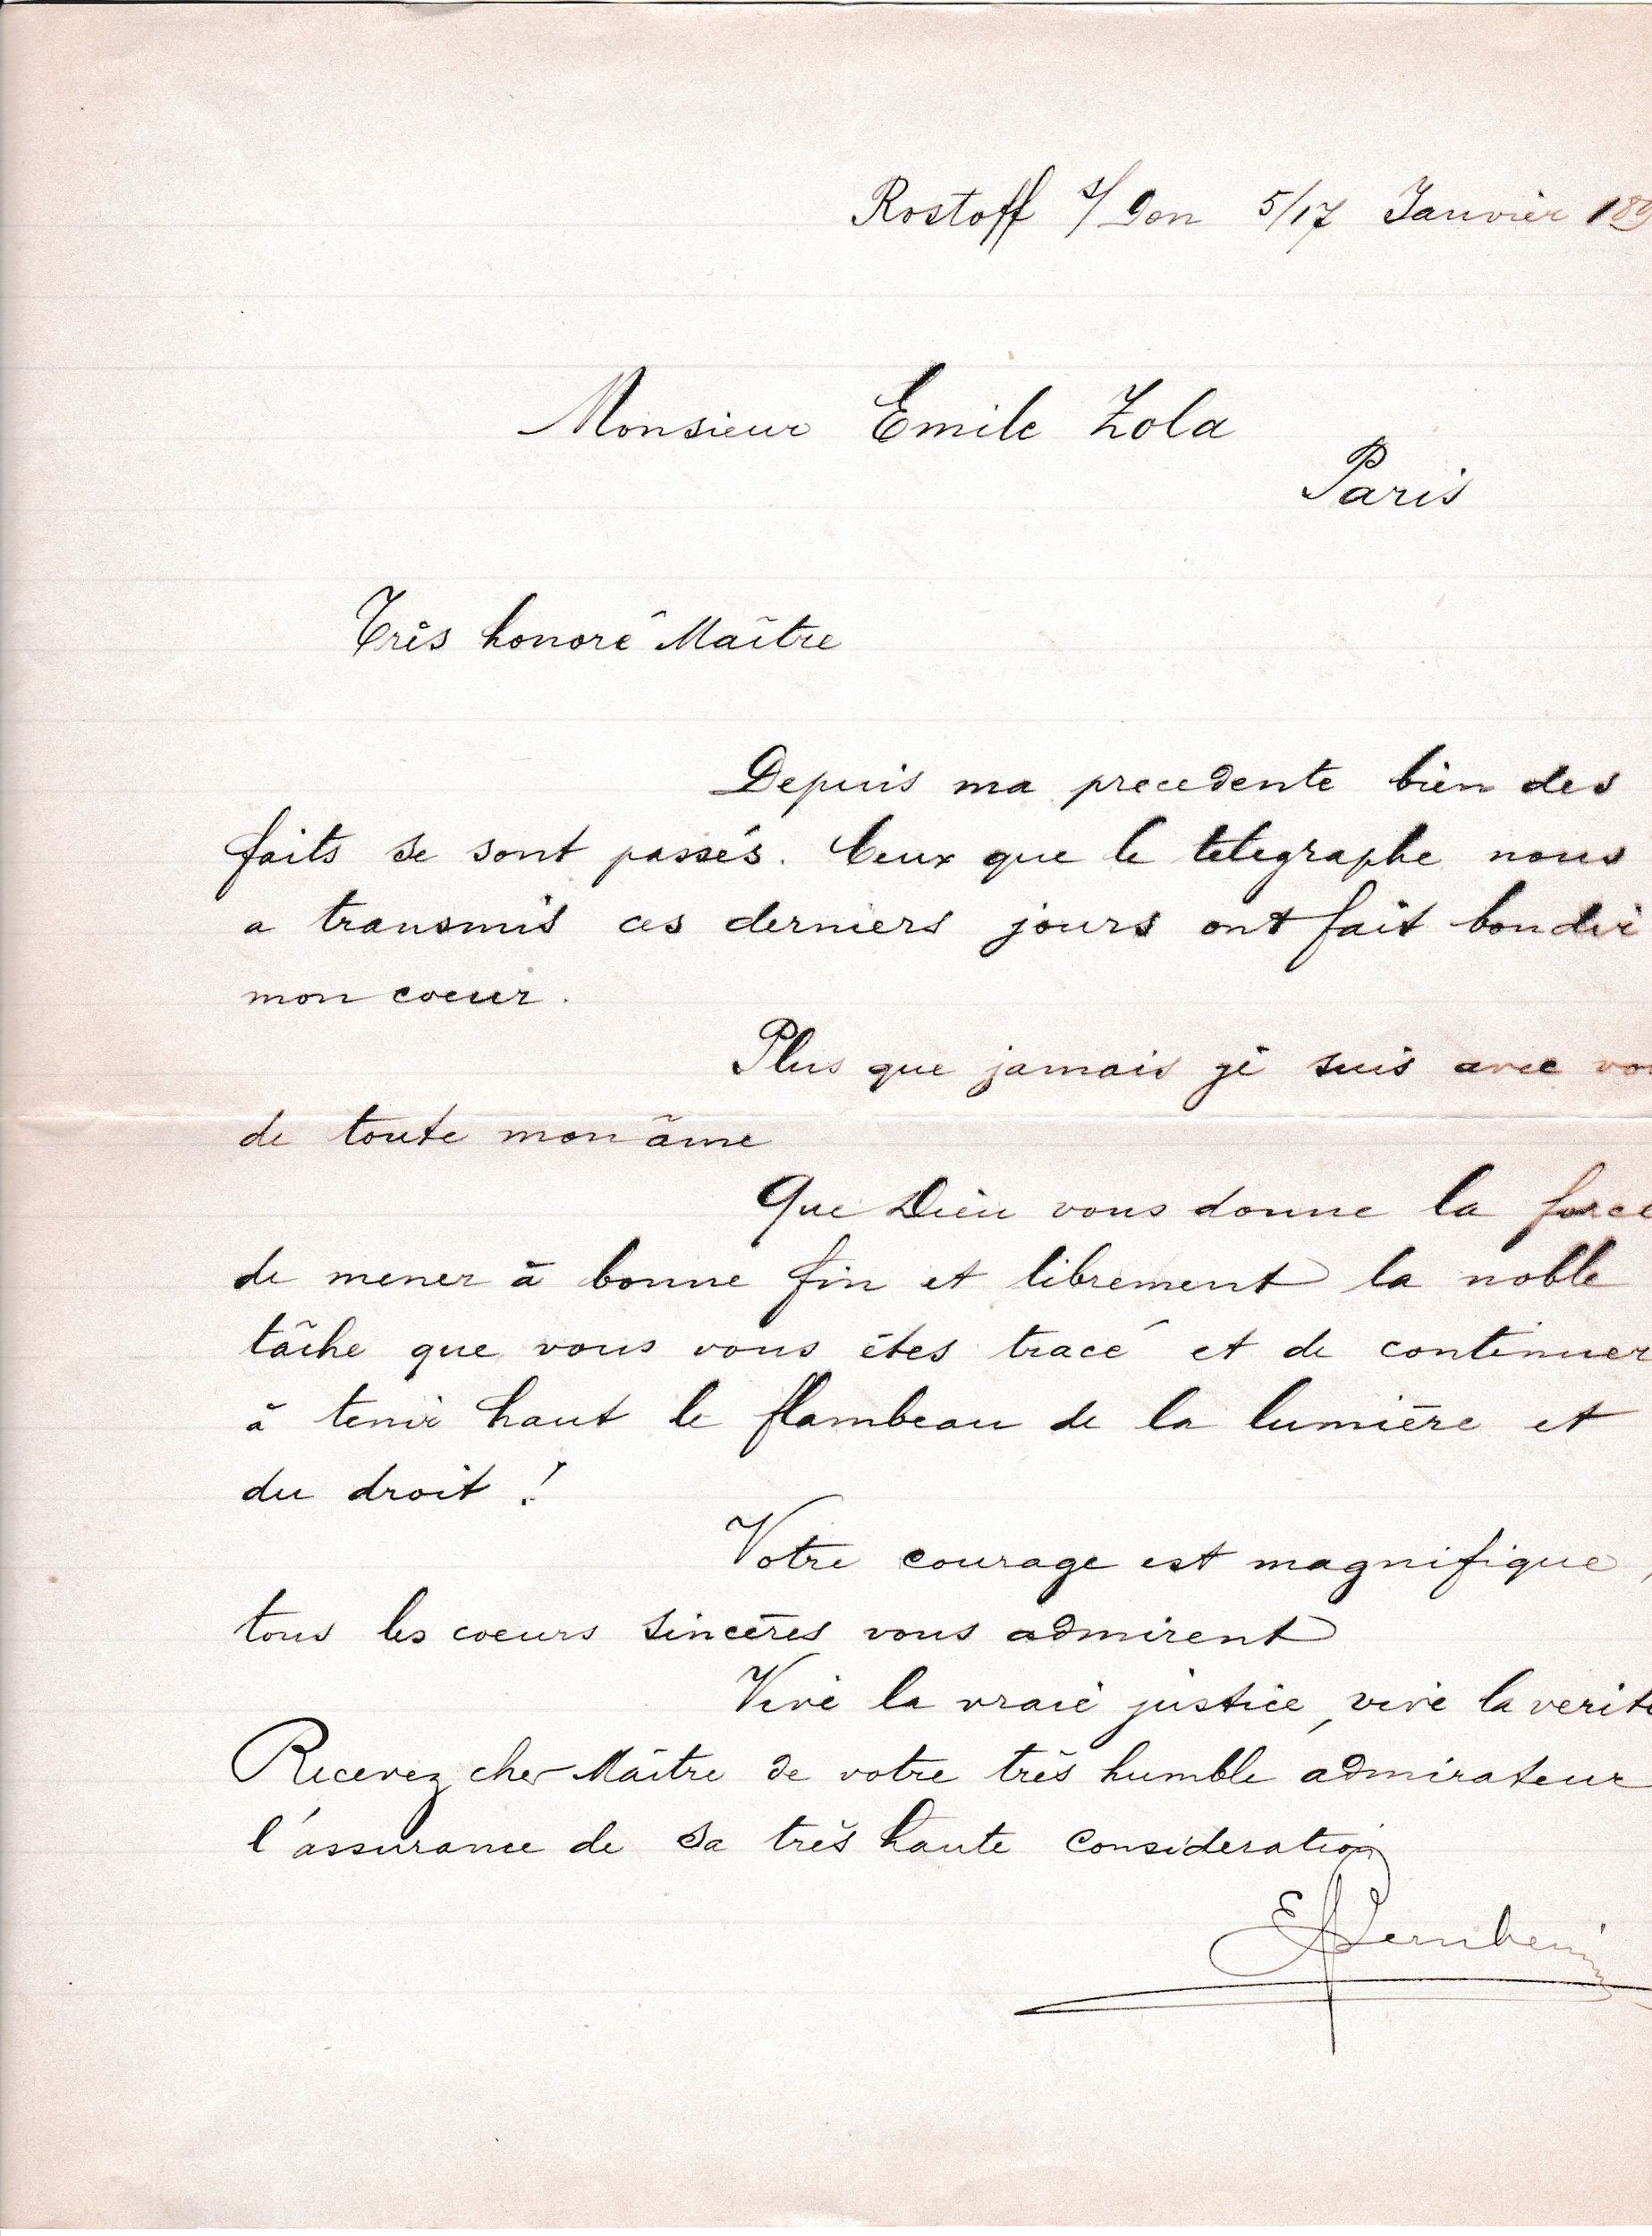 Rostoff s/Don 5/17 Janvier 189
Monsieur Emile Zola
Paris
Très honoré Maître
Depuis ma precedente bien des
faits se sont passés. Ceux que le telegraphe nous
a transmis ces derniers jours ont fait bondir
mon coeur.
Plus que jamais je suis avec vou
de toute mon âme
Que Dieu vous donne la force
de mener à bonne fin et librement la noble
tâche que vous vous êtes tracé et de continuer
à tenir haut le flambeau de la lumière et
du droit !
Votre courage est magnifique,
tous les coeurs sincères vous admirent
Vive la vraie justice, vive la verité
Recevez cher Maître de votre très humble admirateur
l'assurance de sa très haute consideration